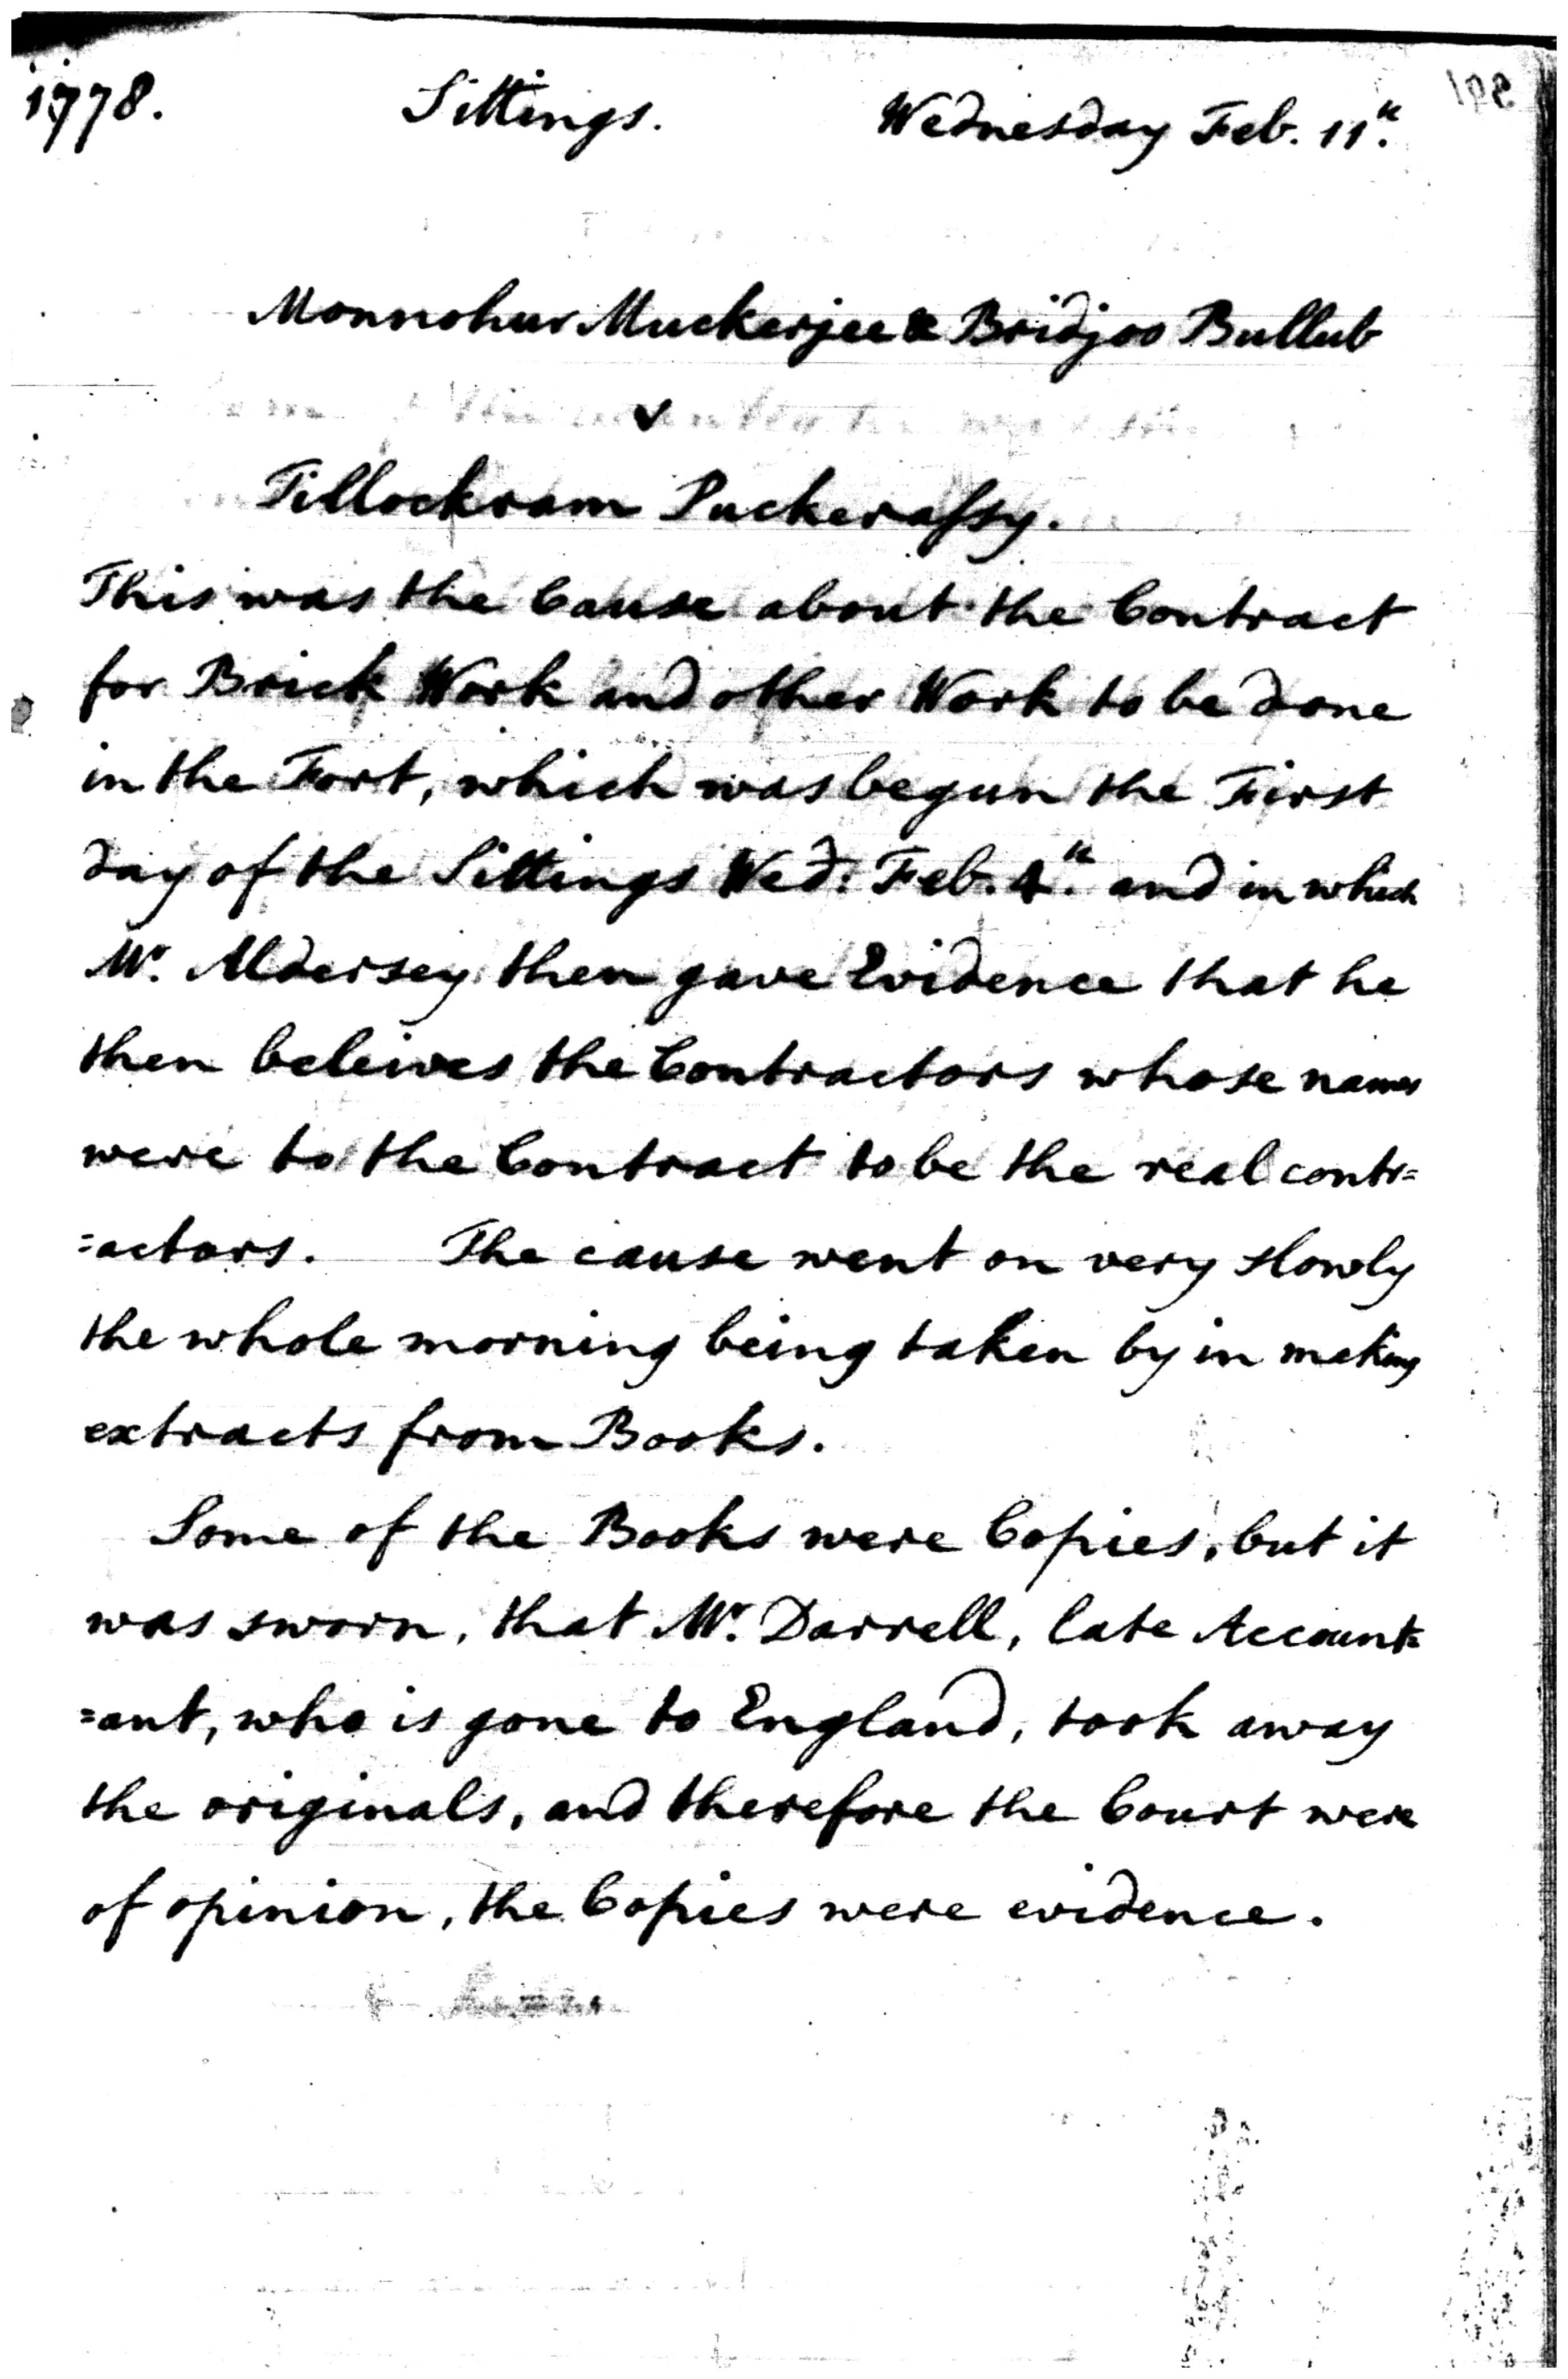 1778. Sittings. Wednesday Feb. 11th.
Monnohur Muckerjee & Bridjoo Bullub
v
Tillockram Puckeraſsy.
This was the Cause about the Contract
for Brick Work and other Work to be done
in the Fort, which was begun the First
day of the Sittings Wed: Feb. 4th. and in which
Mr. Aldersey then gave Evidence that he
then beleives the Contractors whose names
were to the Contract to be the real contr=
=actors. The cause went on very slowly
the whole morning being taken by in making
extracts from Books.
Some of the Books were Copies, but it
was sworn, that Mr. Darrell, late Account=
=ant, who is gone to England, took away
the originals, and therefore the Court were
of opinion, the Copies were evidence.